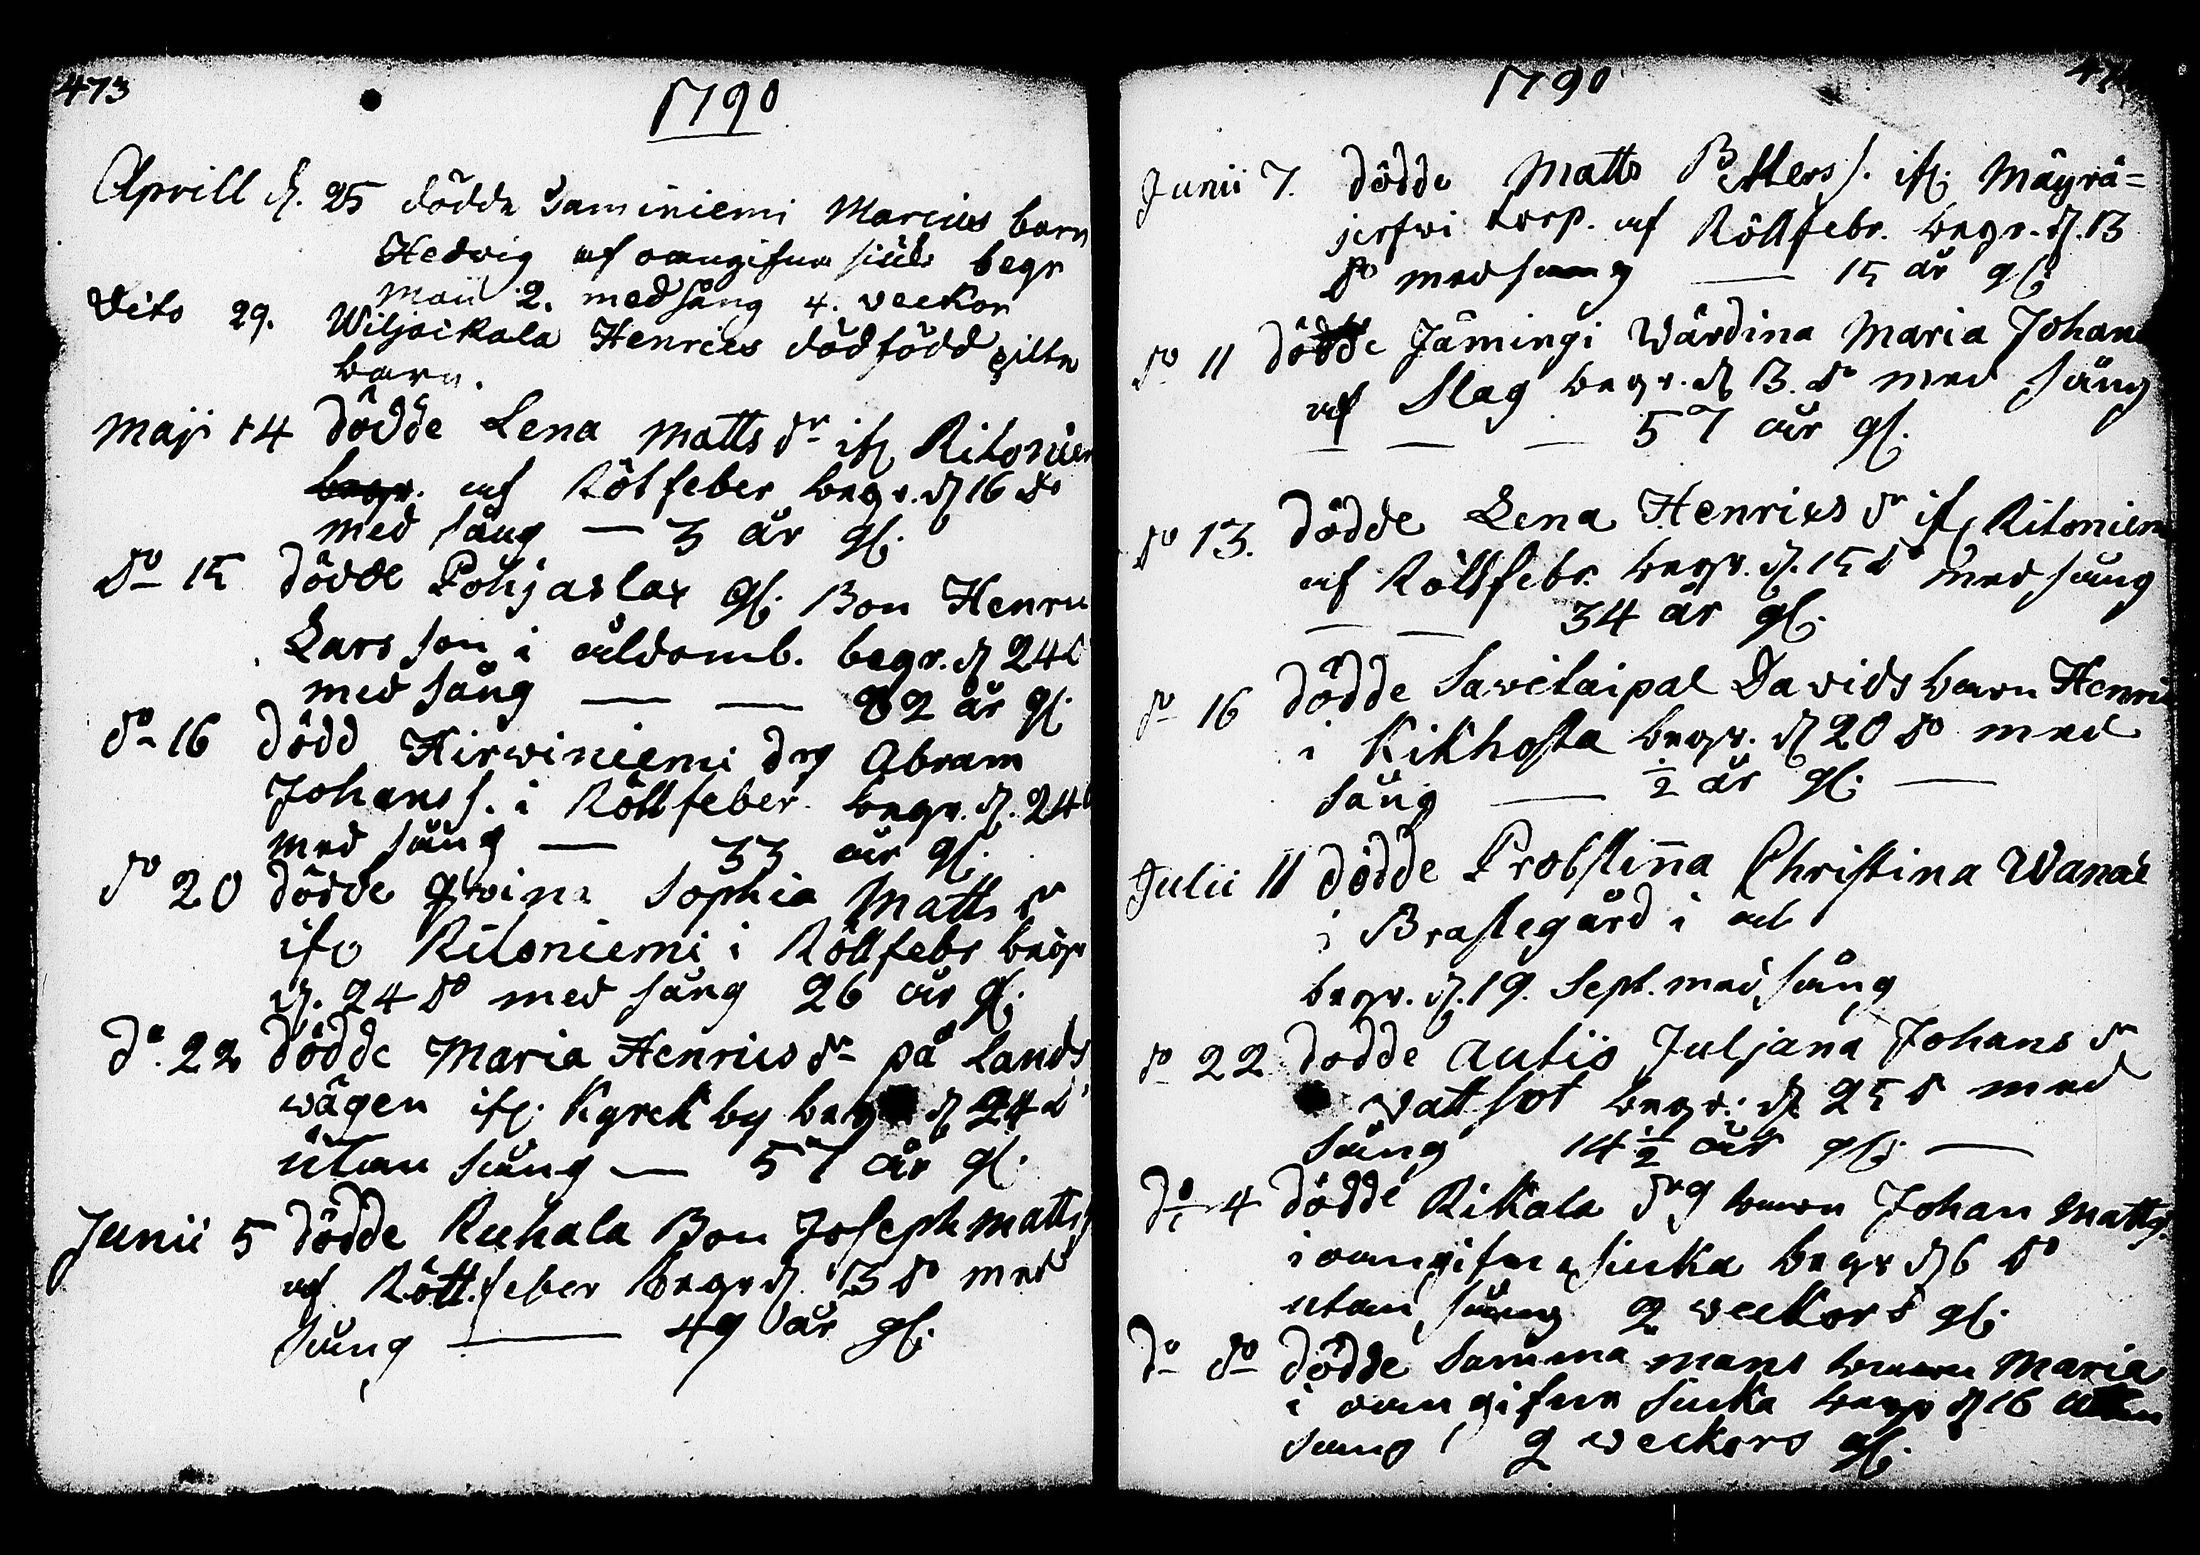 473
1790
Aprill d. 25 dödde Saminiemi Marcus barn
Hedvig af oangifven siuk begr
Maii 2. med sång 4. veckor
Dito 29. Wiljaikala Henrics dödfödd pilte
barn.
Maji 14 dödde Lena Matts dr ifr Ritoniem
begr. af Rötfeber begr. d 16 do
med sång — 3 år gl.
do 15 dödde Pohjaslax gl. Bon Henric
Larsson i åldomb. begr. d 24 d
med sång — — 82 år gl.
do 16 dödd Hirwiniemi drg Abram
Johanss. i Rötfeber begr. d. 24 d
med sång — 33 år gl.
do 20 dödde qwin: Sophia Matts dr
ifr Ritoniemi i Rötfebr begr
d. 24 do med sång 26 år gl.
do. 22 dödde Maria Henrics dr på Lands
wägen ifr. Kyrckby begr d 24 d
utan sång — 57 år gl.
Junii 5 dödde Ruhala Bon Joseph Mattss
af Röttfeber begr d. 13 do med
sång — 49 år gl.
1790
Junii 7. dödde Matts Petterss. ifr. Mäyrä=
jerfwi torp. af Rötfebr. begr. d. 13
do med sång — 15 år gl.
do 11 dödde Jämingi Wärdina Maria Johans
af Slag begr. d 13. do med sång
— — 57 år gl.
do 13. dödde Lena Henrics dr ifr Ritoniem
af Rötfebr. begr. d. 15 d med sång
— — 34 år gl.
do 16 dödde Savitaipal Davids barn Henric
i Kikhosta begr. d 20 do med
sång — ½ år gl. —
Julii 11 dödde Probstinna Christina Wanæ
i Brastegård i
begr. d. 19. Sept. med sång
do 22 dödde Autio Juljana Johans dr
Vattsot begr. d 25 d med
sång 14 ½ år gl. —
do 4 dödde Rikala drg barn Johan Mattss.
i oangifven siuka begr d 6 do
utan sång 2 veckors gl.
do do dödde samma mans barn Maria
i oangifven siuka begr d 16 utan
sang 2 weckors gl.